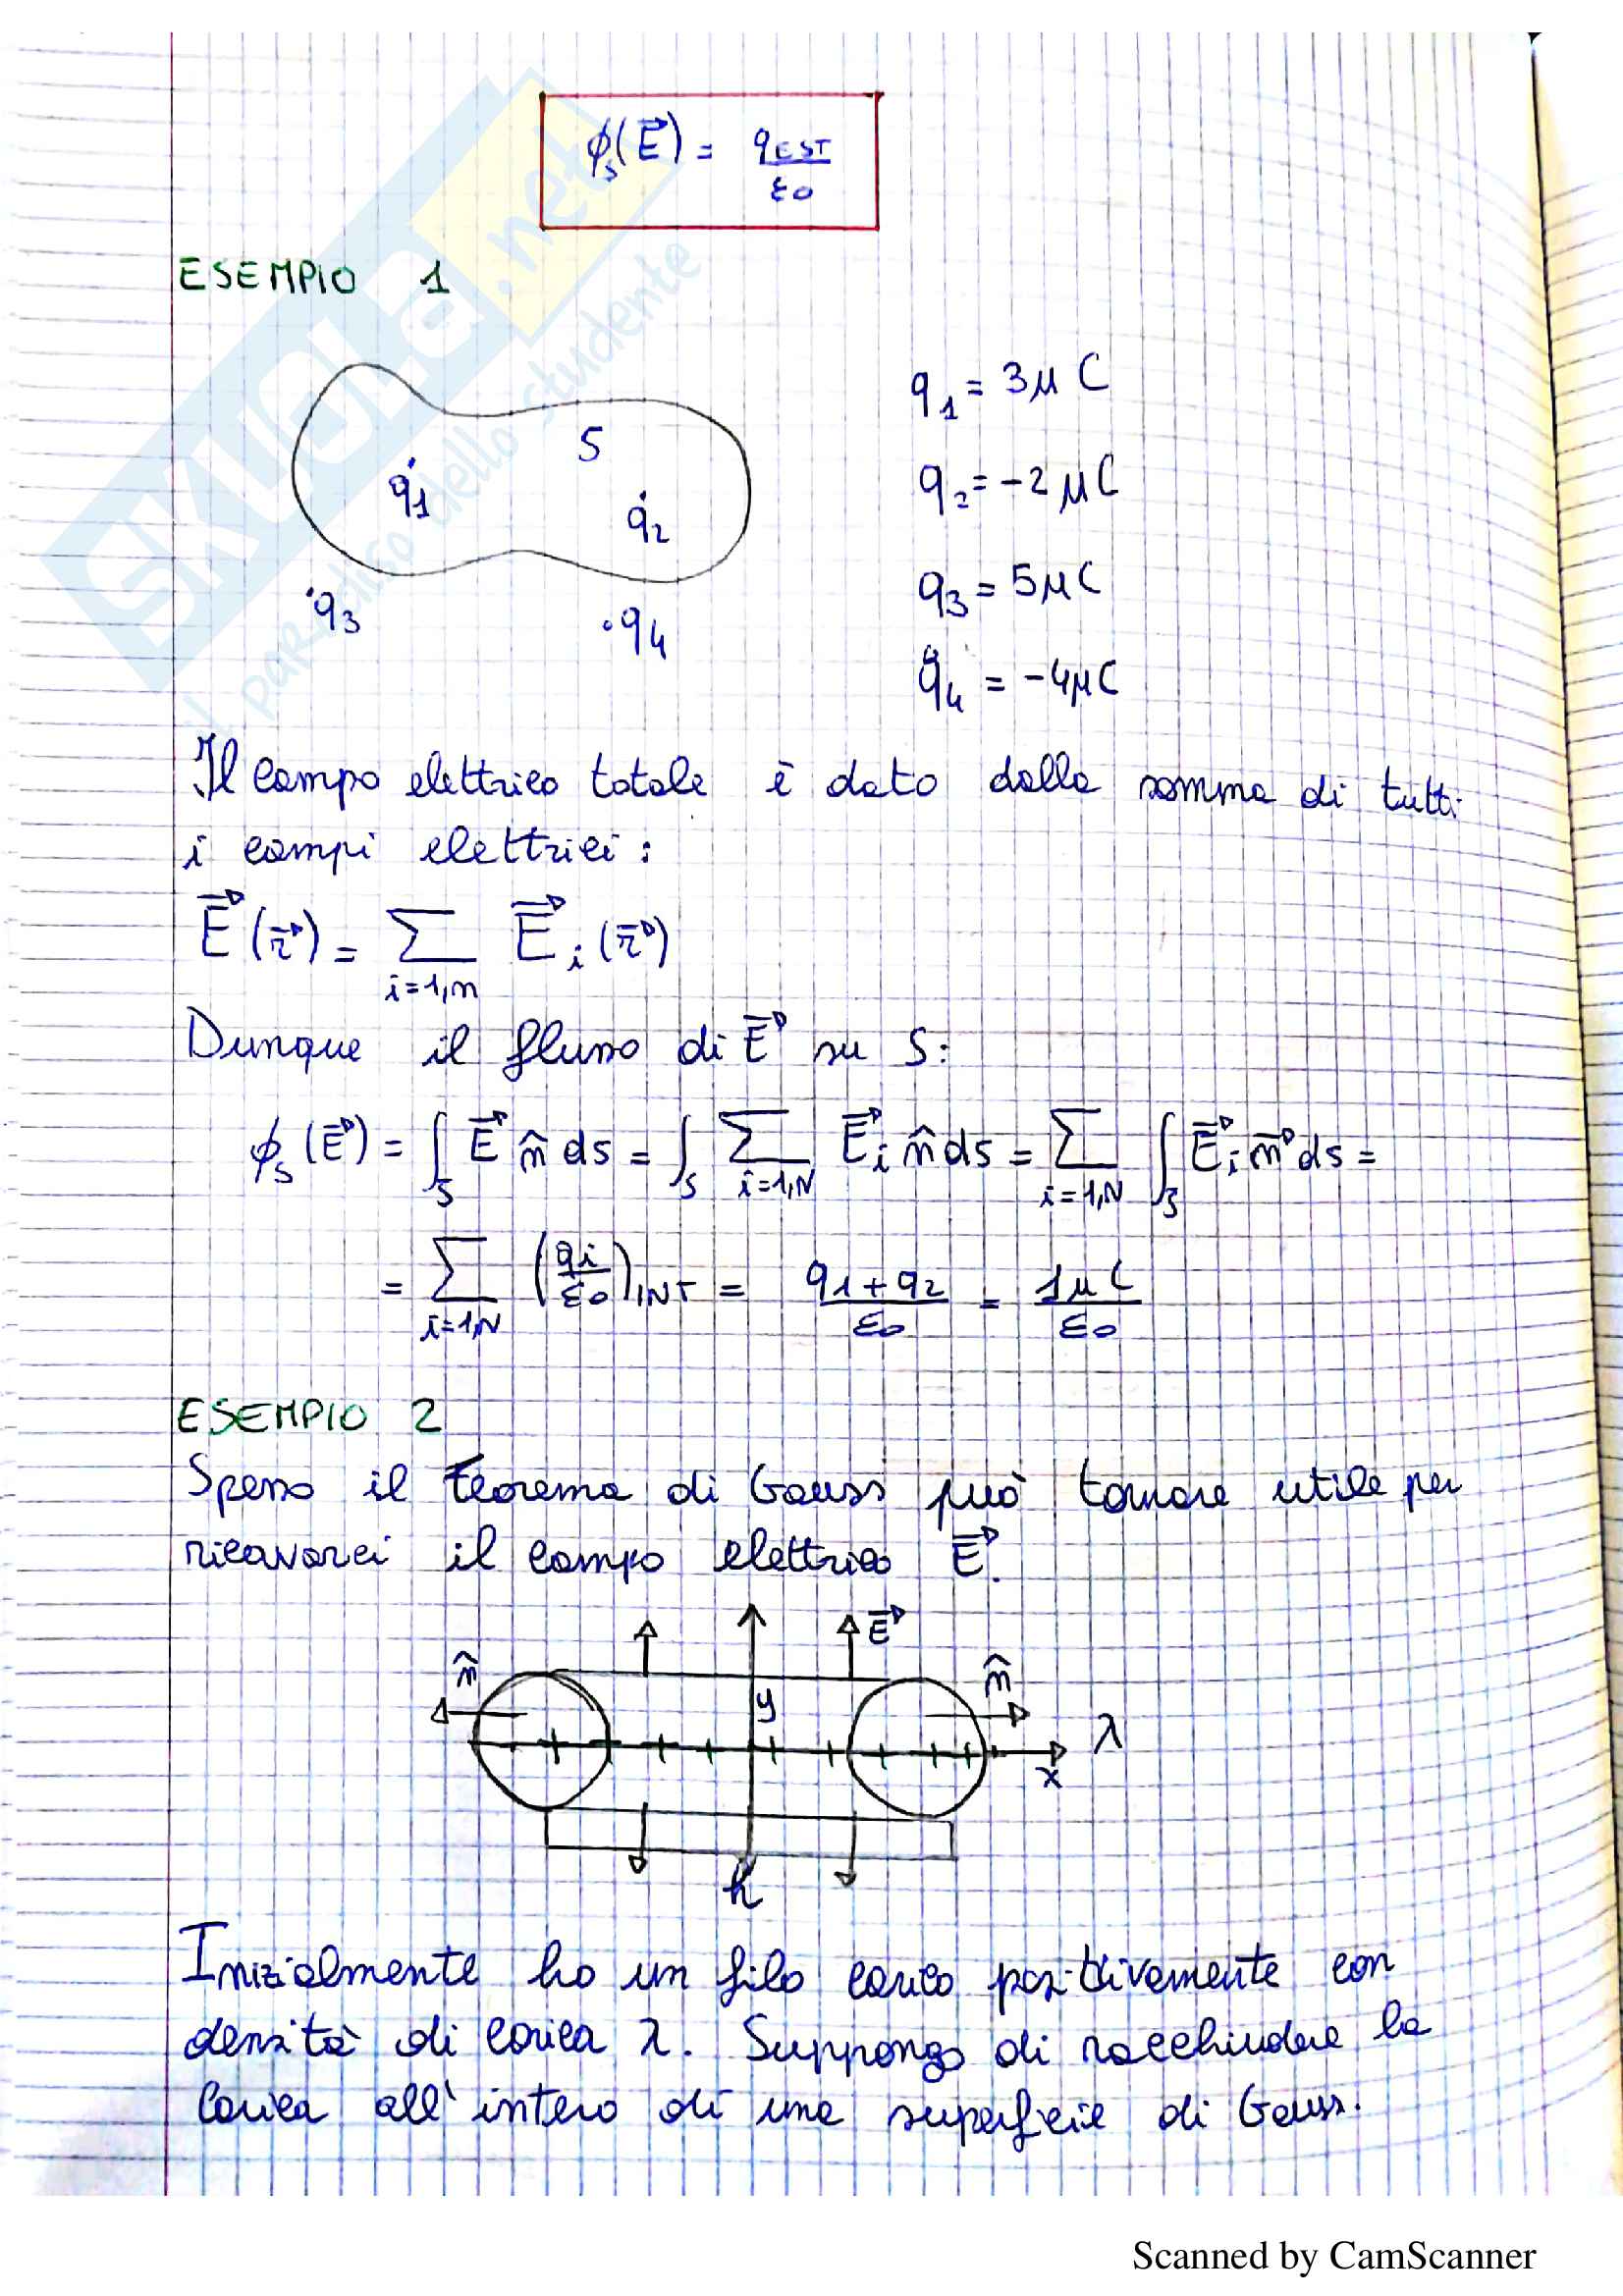 ϕ_S(E⃗) = q_EST/ε0
ESEMPIO 1
SKUOLA.net
il paradiso dello studente
S
q1
q2
q3
q4
q1 = 3μC
q2 = -2μC
q3 = 5μC
q4 = -4μC
Il campo elettrico totale è dato dalla somma di tutti
i campi elettrici:
E⃗(r⃗) = ∑_{i=1,n} E⃗_i(r⃗)
Dunque il flusso di E⃗ su S:
ϕ_S(E⃗) = ∫_S E⃗ n̂ ds = ∫_S ∑_{i=1,N} E⃗_i n̂ ds = ∑_{i=1,N} ∫_S E⃗_i n⃗ ds =
= ∑_{i=1,N} (qi/ε0)_INT = (q1+q2)/ε0 = 1μC/ε0
ESEMPIO 2
Spesso il teorema di Gauss può tornare utile per
ricavarci il campo elettrico E⃗.
E⃗
n̂
n̂
y
λ
x
h
Inizialmente ho un filo carico positivamente con
densità di carica λ. Suppongo di racchiudere la
carica all'intero di una superficie di Gauss.
Scanned by CamScanner